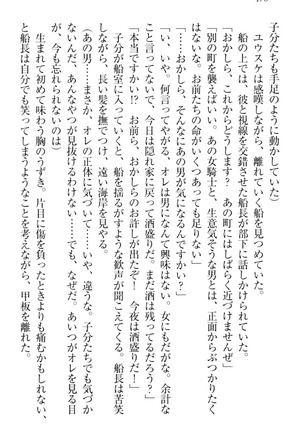 子分たちも足早に動かしていた」
ユウスケは感嘆しながら、離れていく船を見つめていた。
船の上では、彼と視線を交錯させた船長が部下に話しかけられていた。
「おかしら、これからどうします？　あの町にはしばらく近づけませんぜ」
「別の町を襲えばいい。あの女騎士と、生意気そうな男とは、正面からぶつかりたく
ないな。お前たちの命がいくつあっても足りない」
「……おかしら、あの男が気になるんですかい？」
「い、いや。何言ってやがる。オレは男になんて興味はない。女にもだがな。余計な
こと言ってないで、今日は隠れ家に戻って酒盛りだ。まだ酒は残ってるだろう？」
「本当ですかい!?　お前ら、おかしらのお許しが出たぞ！　今夜は酒盛りだ！」
子分が船室に入っていくと、船を揺るがすような歓声が聞こえてくる。船長は苦笑
しながら、長い髪を撫でつけ、遠い海岸を見やる。
（あの男……まさか、オレの正体に気づいて……いや、違うな。子分たちでも気づか
ないんだ、あんなやつが見抜けるわけない……でも、なぜだ。あいつがオレを見る目
が、今も忘れられないのは）
生まれて初めて味わう胸のうずき。片目に傷を負ったときよりも痛むかもしれない
と船長自身が思ってしまうようなことを考えながら、甲板を離れた。